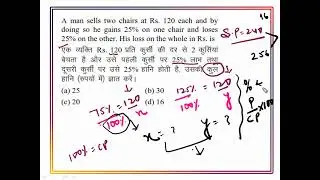 A man sells two chairs at Rs. 120 each and by
doing so he gains 25% on one chair and loses
25% on the other. His loss on the whole in Rs. is
एक व्यक्ति Rs. 120 प्रति कुर्सी की दर से 2 कुर्सियां
बेचता है और उसे पहली कुर्सी पर 25% लाभ तथा
दूसरी कुर्सी पर उसे 25% हानि होती है, उसकी कुल
हानि (रुपयों में) ज्ञात करें।
(a) 25 (b) 30
(c) 20 (d) 16
16
S.P=240
256
75% = 120
100%
125% = 120
100% y
x = ?
y = ?
100% = CP
%
P
CP ×100